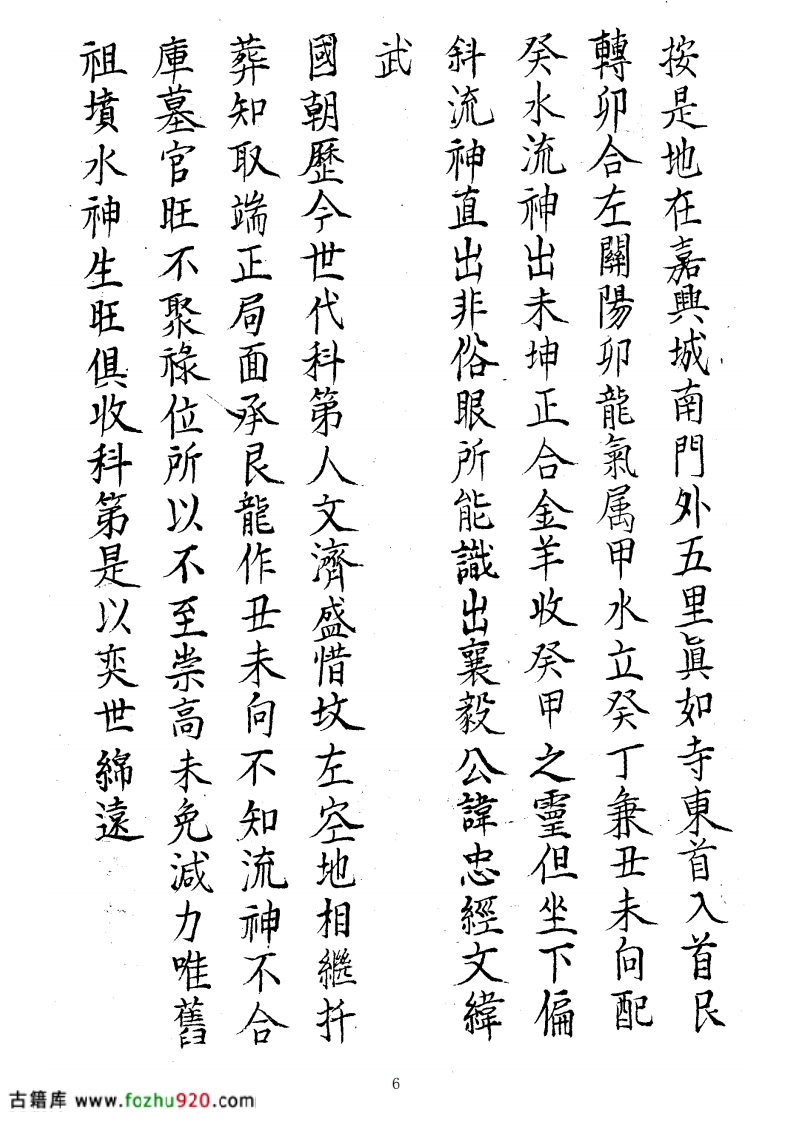 按是地在嘉興城南門外五里眞如寺東首入首艮
轉卯合左關陽卯龍氣属甲水立癸丁兼丑未向配
癸水流神出未坤正合金羊收癸甲之靈但坐下偏
斜流神直出非俗眼所能識出襄毅公諱忠經文緯
武
國朝歷今世代科第人文濟盛惜坟左空地相繼扦
葬知取端正局面承艮龍作丑未向不知流神不合
庫墓官旺不聚祿位所以不至崇高未免減力唯舊
祖墳水神生旺俱收科第是以奕世綿遠
6
古籍库 www.fozhu920.com